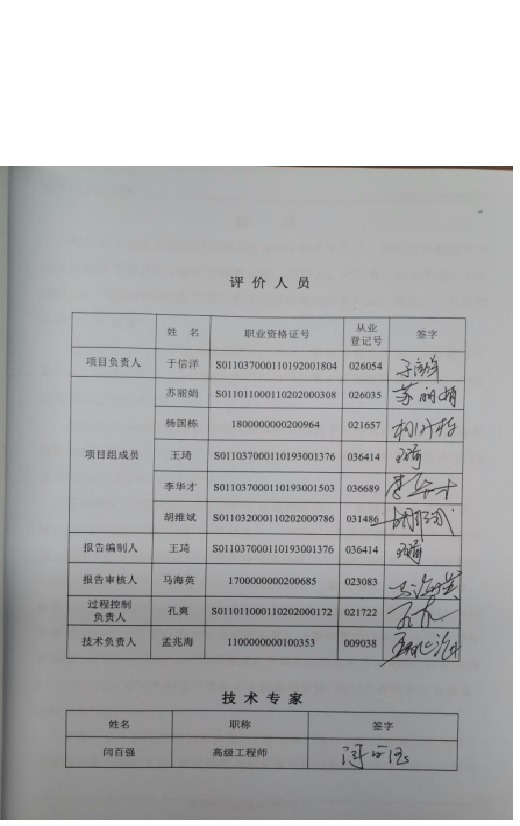 评价人员
姓 名 职业资格证号 从业登记号 签字
项目负责人 于信洋 S011037000110192001804 026054 于信洋
项目组成员 苏丽娟 S011011000110202000308 026035 苏丽娟
杨国栋 1800000000200964 021657
王琦 S011037000110193001376 036414 王琦
李华才 S011037000110193001503 036689 李华才
胡维斌 S011032000110202000786 031486
报告编制人 王琦 S011037000110193001376 036414 王琦
报告审核人 马海英 1700000000200685 023083 马海英
过程控制负责人 孔爽 S011011000110202000172 021722
技术负责人 孟兆海 1100000000100353 009038
技术专家
姓名 职称 签字
闫百强 高级工程师